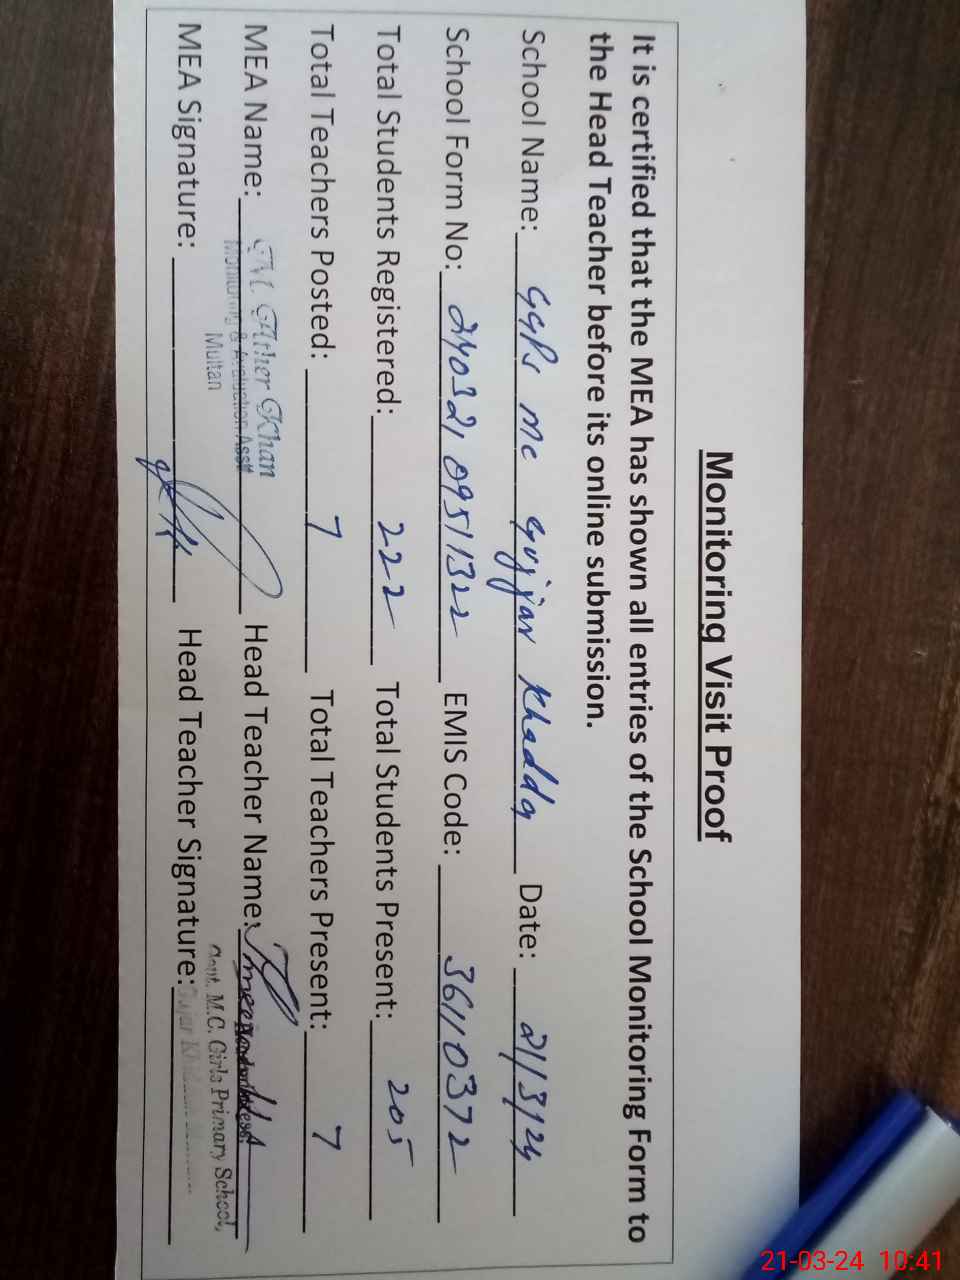 Monitoring Visit Proof
It is certified that the MEA has shown all entries of the School Monitoring Form to
the Head Teacher before its online submission.
School Name: GGPS MC Gujjar Khadda Date: 21/3/24
School Form No: 240321 0951322 EMIS Code: 36110372
Total Students Registered: 222 Total Students Present: 205
Total Teachers Posted: 7 Total Teachers Present: 7
MEA Name: M. Ather Khan Head Teacher Name:
Monitoring & Evaluation Asstt
Multan
Govt. M.C. Girls Primary School,
MEA Signature: Head Teacher Signature:
21-03-24 10:41